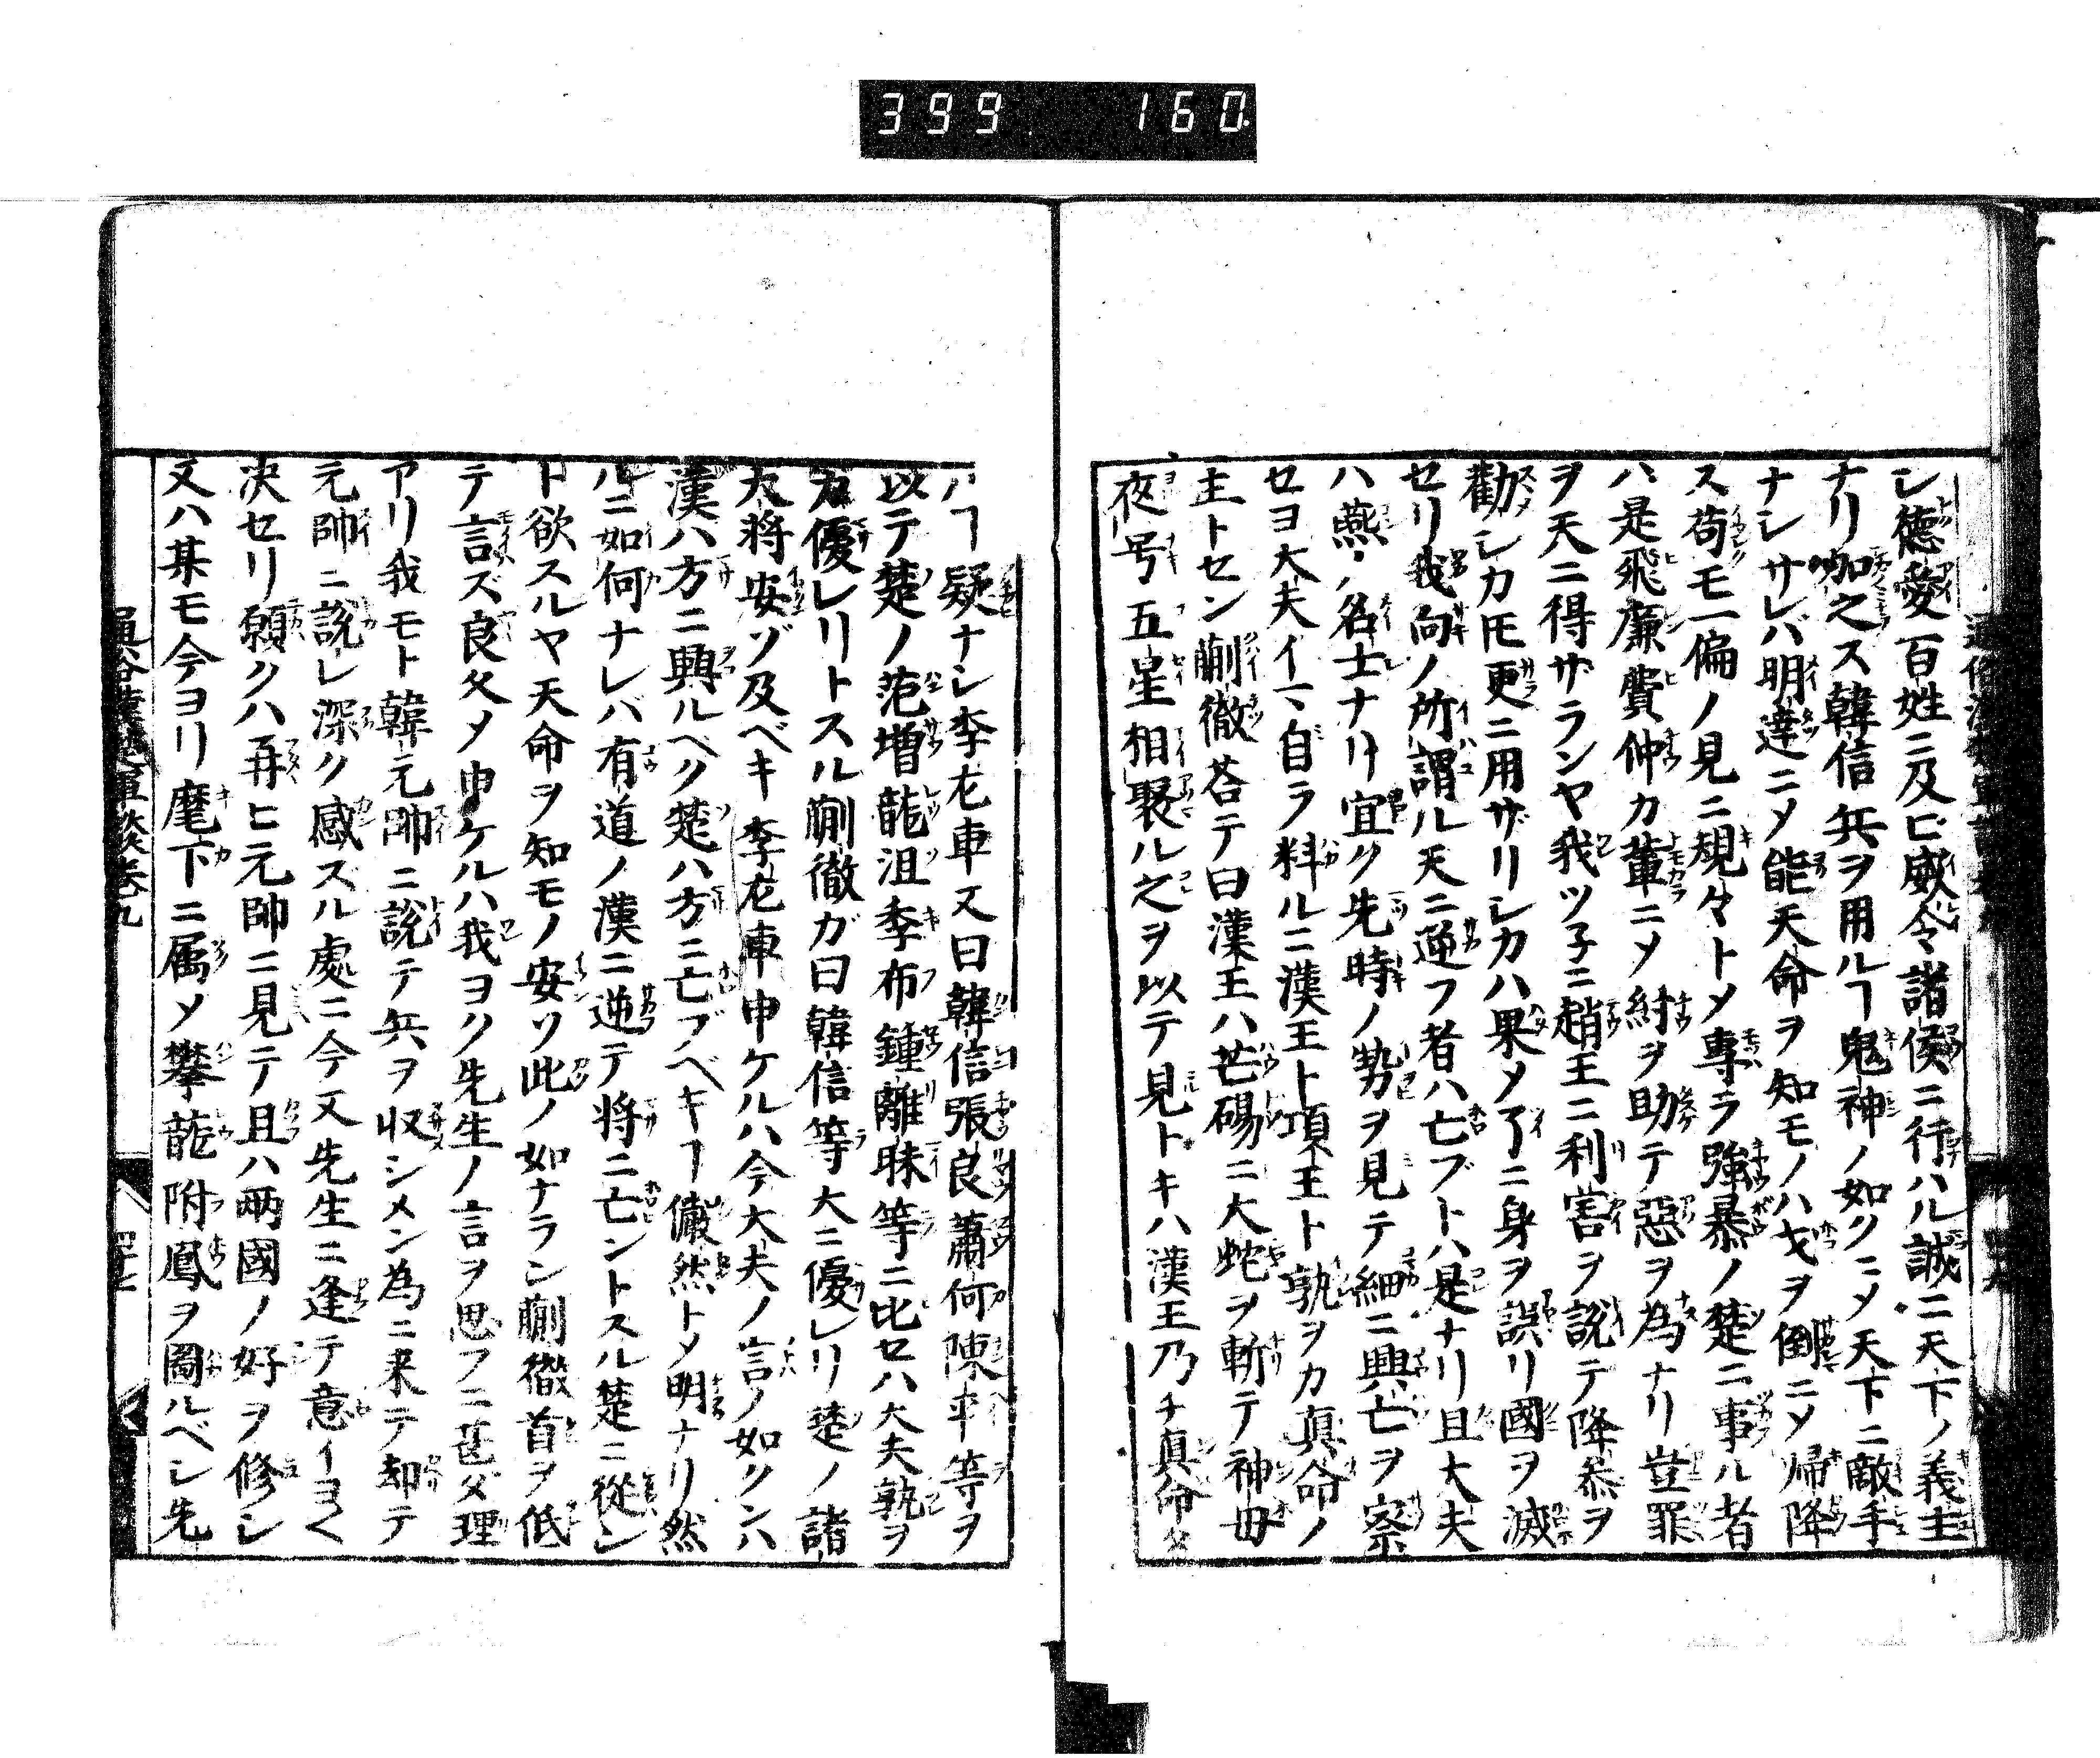 399 160
シ德愛百姓ニ及ビ威令諸侯ニ行ハル誠ニ天下ノ義主
ナリ加之ス韓信兵ヲ用ルヿ鬼神ノ如クニメ天下ニ敵手
ナシサレバ明達ニメ能天命ヲ知モノハ戈ヲ倒ニメ帰降
ス苟モ一偏ノ見ニ規々トメ專ラ強暴ノ楚ニ事ル者
ハ是飛廉費仲カ輩ニメ紂ヲ助テ惡ヲ為ナリ豈罪
ヲ天ニ得ザランヤ我ツ子ニ趙王ニ利害ヲ説テ降参ヲ
勸シカ𪜈更ニ用ザリシカハ果メ了ニ身ヲ誤リ國ヲ滅
セリ我向ノ所謂ル天ニ逆フ者ハ亡ブトハ是ナリ且大夫
ハ燕ノ名士ナリ宜ク先時ノ勢ヲ見テ細ニ興亡ヲ察
セヨ大夫イマ自ラ料ルニ漢王ト項王ト孰ヲカ真命ノ
主トセン蒯徹荅テ曰漢王ハ芒碭ニ大蛇ヲ斬テ神毋
夜号五星相聚ル之ヲ以テ見トキハ漢王乃チ真命タ
ルヿ疑ナシ李左車又曰韓信張良蕭何陳平等ヲ
以テ楚ノ范增龍沮季布鍾離昧等ニ比セハ大夫孰ヲ
カ優レリトスル蒯徹ガ曰韓信等大ニ優レリ楚ノ諸
大將安ゾ及ベキ李左車申ケルハ今大夫ノ言ノ如クンハ
漢ハ方ニ興ルヘク楚ハ方ニ亡ブベキヿ儼然トメ明ナリ然
ルニ如何ナレバ有道ノ漢ニ逆テ将ニ亡ントスル楚ニ從ン
ト欲スルヤ天命ヲ知モノ安ソ此ノ如ナラン蒯徹首ヲ低
テ言ズ良久メ申ケルハ我ヨク先生ノ言ヲ思フニ甚タ理
アリ我モト韓元帥ニ說テ兵ヲ収シメン為ニ来テ却テ
元帥ニ說レ深ク感スル處ニ今又先生ニ逢テ意イヨ〱
决セリ願クハ再ヒ元帥ニ見テ且ハ兩國ノ好ヲ修シ
又ハ某モ今ヨリ麾下ニ属メ攀龍附鳳ヲ圖ルベシ先